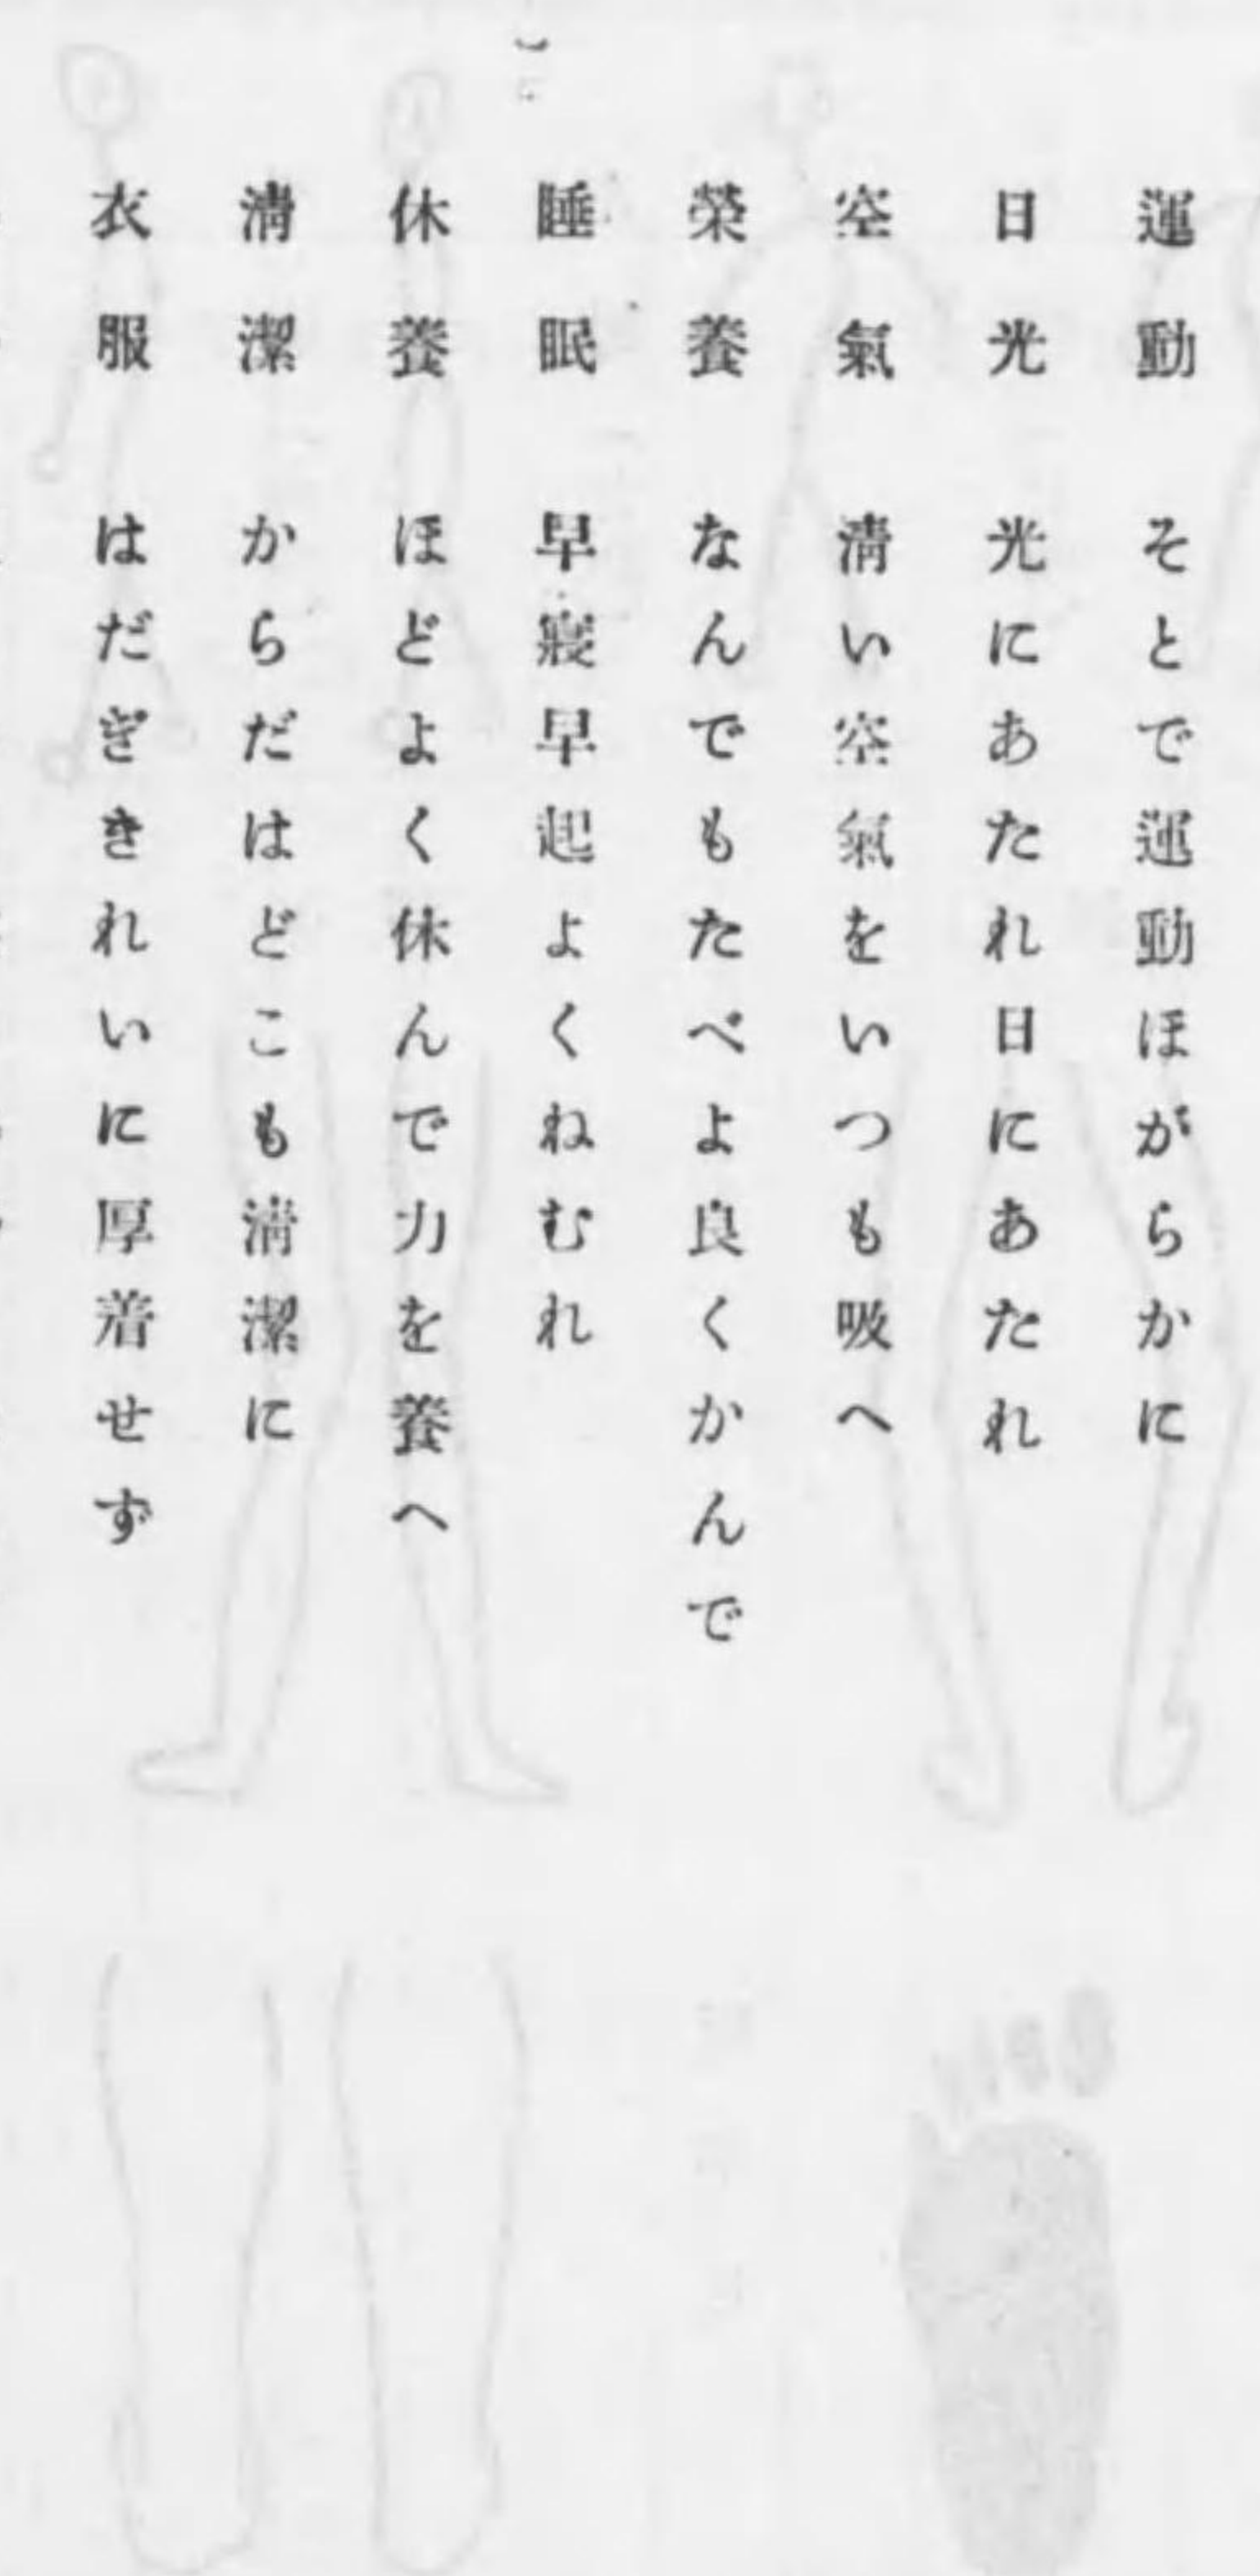 運動　そとで運動ほがらかに
日光　光にあたれ日にあたれ
空氣　清い空氣をいつも吸へ
榮養　なんでもたべよ良くかんで
睡眠　早寢早起よくねむれ
休養　ほどよく休んで力を養へ
清潔　からだはどこも清潔に
衣服　はだぎきれいに厚着せず